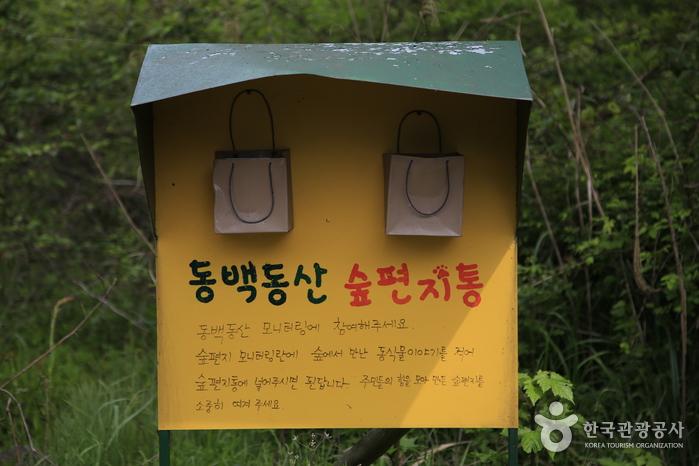 동백동산 숲편지통
동백동산 모니터링에 참여해주세요.
숲편지 모니터링란에 숲에서 만난 동식물이야기를 적어
숲편지통에 넣어주시면 된답니다. 주민들의 힘을 모아 만든 숲편지를
소중히 여겨 주세요.
한국관광공사
KOREA TOURISM ORGANIZATION